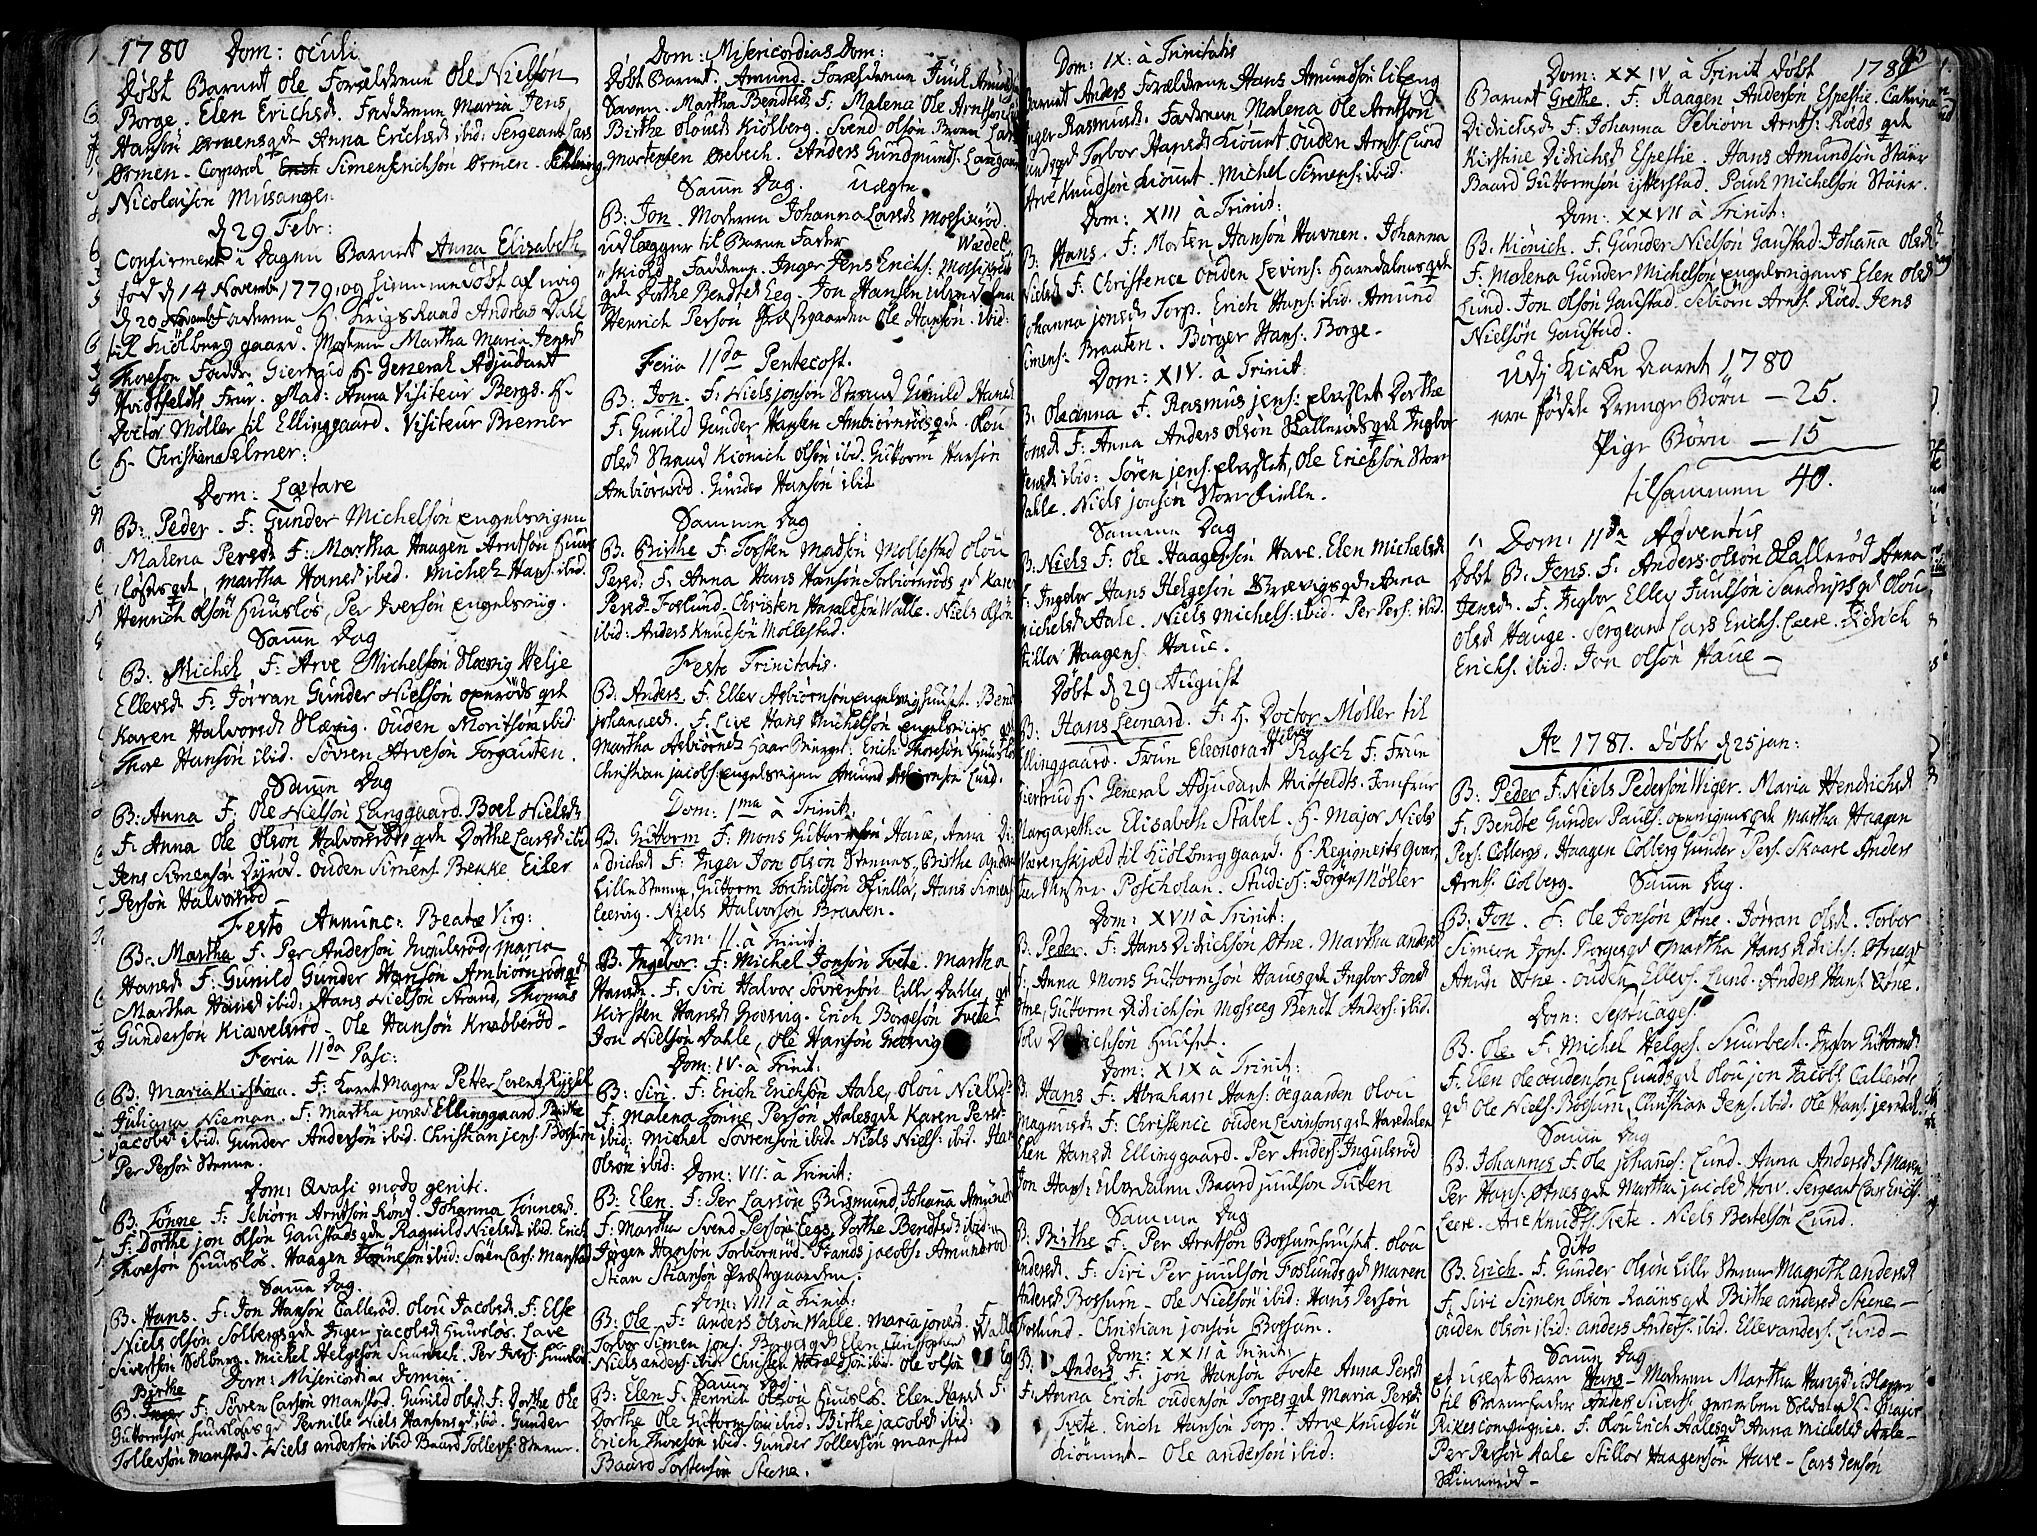 1780 Dom: Oculi
Døbt Barnet Ole Forældrene Ole Nielsøn
Borge. Elen Erichsd. Fadderne Maria Jens
Hansøn Ørmensqd Anna Erichsd ibid: Sergeant Lars
Ørmen. Corporal Simen Erichsøn Ørmen.
Nicolaisøn Musanger.
d 29 Febr:
Confirmert i Dagen Barnet Anna Elisabeth
født d 14 Novembr 1779 og hiemmedøbt af mig
d 20 Novembr Fadderne H. Krigs Raad Andreas Dahl
til Kiølberg gaard. Moderen Martha Maria Jensd
Thoreson Faddr. Giertrud H. General Adjudant
Hvidtfeldts Frue. Mad: Anna Visiteur Bergs. H.
Doctor Møller til Ellinggaard. Visiteur Bremer
H. Christian Selmer:
Dom: Lætare
B: Peder. F: Gunder Michelsøn Engelsvigen
Malena Persd F: Martha Haagen Arntsøn
Martha Hansd ibid. Michel Hans: ibid.
Henrich Olsøn Huusløs, Per Iversøn Engelsvig.
Samme Dag
B: Michel F: Arve Michelsøn Slævig Helje
Ellevsd F: Jørran Gunder Nielsøn Opnrøds qd
Karen Halvorsd Slævig. Ouden Moritsøn ibid
Thore Hansøn ibid. Søvren Arvesøn Torgauten.
Samme Dag
B: Anna F: Ole Nielsøn Langgaard. Boel Nielsd
F. Anna Ole Olsøn Halvorsrøds qd Dorthe Larsd ibid
Jens Simensøn Dyrød. Ouden Simens. Bekke Eiler
Persøn Halvorsrød
Festo Annunc: Beatæ Virg:
B: Martha F. Per Andersøn Ingulsrød, Maria
Hansd F: Gunild Gunder Hansøn Ambiørnrøds qd
Martha Hansd ibid, Hans Nielsøn Strand, Thomas
Gundersøn Kiævelsrød - Ole Hansøn Knabberød -
Feria IIda Pasc:
B: Maria Kirstina. F: Petter Lorents
Juliana Nieman. F: Martha Jonsd Ellinggaard Birthe
Jacobsd ibid. Gunder Andersøn ibid. Christian Jens. Bossum
Per Persøn Stenne.
Dom: Qvasi modo geniti.
B: Tønne F: Sebiørn Arntsøn Rønd. Johanna Tønnesd.
F: Dorthe Jon Olsøn Gaustads qd Ragnild Nielsd ibid. Erich
Thoresøn Huusløs. Haagen Tønnesøn ibid: Søren Lars. Manstad
Samme Dag.
B. Hans. F. Jon Hansøn Callerød. Olou Jacobsd. F: Else
Niels Olsøn Solbergs qd Inger Jacobsd Huusløs. Lave
Sivertsen Solberg. Michel Helgesøn Snurbech. Per Ivers. Huusløs
Dom: Misericordiæ Domini.
Birthe
B. Inger F: Søvren Larsøn Manstad. Gunild Olsd. F: Dorthe Ole
Guttormsøn Huusløs qd Pernille Niels Hansens qd ibid. Gunder
Tollevsøn Manstad. Niels Andersøn ibid Baard Tollevs: Stenne.
Dom: Misericordias Dom:
Døbt Barnet. Amund. Forældrene Juul
Savnn. Martha Bendtsd. F: Malena Ole Arntsøn
Birthe Olousd Kiølberg. Svend Olsøn
Mortensen Ørebech. Anders Gundmunds:
Samme Dag. Uægte
B: Jon. Moderen Johanna Larsd Mossikrød
udlægger til Barne Fader Wedel
skiold. Fadderne. Inger Jens Erichs: Mossikrød
qd Dorthe Bendtsd Eeg. Jon Hansen
Henrich Persøn Præstgaarden Ole Hansøn. ibid:
Feria IIda Pentecost.
B: Jon. F: Niels Jonsøn Strand Gunild Hansd
F: Gunild Gunder Hansen Ambiørnrøds qd. Olou
Olsd Strand Kiønich Olsøn ibid. Guttorm Hansøn
Ambiørnrød. Gunder Hansøn ibid
Samme Dag
B: Birthe F: Torsten Madsøn Mollestad Olou
Persd: F: Anna Hans Hansøn Torbiørnrøds qd Karen
Persd Foslund. Christen Haraldsøn Walle. Niels Olsøn
ibid: Anders Knudsøn Mollestad.
Festo Trinitatis.
B: Anders. F: Ellev Asbiørnsøn Engelsvighuuset. Bendt
Johannesd. F. Live Hans Michelsøn Engelsvigs qd
Martha Asbiørnsd Erich Thoresøn Huusløs
Christian Jacobs: Engelsvigen Amund Asbiørnsøn Lund.
Dom: Ima à Trinit:
B: Guttorm F: Mons Guttormsøn Haue, Anna Di=
drichsd F: Inger Jon Olsøn Stennes, Birthe Anders
Lille Stenne Guttorm Torchildsøn Skiellin, Hans Simens
Leervig. Niels Halvorsøn Braaten.
Dom: II. à Trinit
B. Ingebor: F: Michel Jonsøn Tvete. Martha
Hansd. F: Siri Halvor Søvrensøn Lille Dalles qd
Kirsten Hansd Groosvig. Erich Borgesøn Tvete
Jon Nielsøn Dahle, Ole Hansøn Græsvig
Dom: IV. à Trinit:
B: Siri. F: Erich Erichsøn Aale, Olou Nielsd.
F: Malena Lauue Persøn Aales qd Karen Persd
ibid: Michel Søvrensøn ibid. Niels Niels: ibid. Hans
Olsøn ibid:
Dom: VII: à Trinit:
B: Elen. F: Per Larsøn Johana Amunds
F: Martha Svend Persøn Eegs, Dorthe Bendtsd ibid
Jørgen Hansøn Torbiørnrød. Frands Jacobs: Amundrød
Stian Stiansøn Præstgaarden.
Dom: VIII à Trinit:
B: Ole F: Anders Olsøn Walle. Maria Jonsd. F:
Torbor Simen Jons. Brygges qd Elen Christophersd Walle
Niels Anders: ibid Christen Haraldsøn ibid. Ole Olsøn
Samme Dag.
B: Elen F: Henrich Olsøn Huusløs. Elen Hansd F:
Dorthe Ole Guttormsøn ibid. Birthe Jacobsd ibid.
Erich Thoresøn ibid. Gunder Tollevsøn Manstad
Baard Torstensøn Steene.
Dom: IX: à Trinitatis
Barnet Anders Forældrene Hans Amundsøn Libeng
Inger Rasmusd. Fadderne Malena Ole Arntsøn
Lunds qd Torbor Hansd Kiønnt Ouden Arnts: Lund
Arve Knudsøn Kiønnt. Michel Simens: ibid.
Dom: XIII à Trinit:
B: Hans. F: Morten Hansøn Havnen. Johanna
Nielsd F: Christence Ouden Levins: Haredalens qd
Johanna Jonsd Torp. Erich Hans: ibid. Amund
Simens: Braaten. Børger Hans: Borge.
Dom: XIV. à Trinit.
B: Oleanna F. Rasmus Jens: Dorthe
Jonsd F: Anna Anders Olsøn Skallerøds qd Ingbor
Jensd ibid: Søren Jens. Ole Erichsøn Store
Dahle. Niels Jonsøn Store Kielle.
Samme Dag
B. Niels F: Ole Haagensøn Have. Elen Michelsd
F: Ingebor Hans Helgesøn Anna
Michelsd Aale. Niels Michels: ibid. Per Pers: ibid.
Stillor Haagens: Haue.
Døbt d 29 August
B: Hans Leonard. F: H. Doctor Møller til
Ellinggaard. Frue Eleonora Hedvig Rasch F: Frue
Giertrud H. General Adjudant Hvidtfeldts: Jomfrue
Margaretha Elisabeth Stabel. H. Major Niels
Værenskiold til Kiølberg gaard. H. Regiments Qvar=
teer Mester Poscholan. Studios: Jørgen Møller
Dom: XVII à Trinit:
B: Peder. F: Hans Didrichsøn Øtne. Martha Andersd
F: Anna Mons Guttormsøn Haues qd Ingbor Jonsd
Øtne, Guttorm Didrichsøn Mosseeg Bendt Anders: ibid.
Tolv Didrichsøn Huuset.
Dom: XIX à Trinit:
B: Hans F: Abraham Hans: Øegaarden Olou
Magnusd F: Christence Ouden Levinsøns qd Haredalen
Elen Hansd Ellinggaard. Per Anders: Ingulsrød
Jon Hans: Baard Juulsøn Tutten
Samme Dag
B. Birthe F. Per Arntsøn Bossumhuuset. Olou
Andersd. F: Siri Per Juulsøn Foslunds qd Maren
Andersd Bossum - Ole Nielsøn ibid: Hans Persøn
Foslund. Christian Jonsøn Bossum.
Dom: XXII à Trinit:
B: Anders F. Jon Hansøn Tvete Anna Persd
F: Anna Erich Oudensøn Torpes qd Maria Persd
Tvete. Erich Hansøn Torp. Arve Knudsøn
Kiønnt - Ole Andersøn ibid:
93
Dom: XXIV à Trinit Døbt 1780
Barnet Grethe. F. Haagen Andersøn Espestie. Cathrina
Didrichsd F: Johanna Sebiørn Arnts: Røeds qd
Kirstine Didrichsd Espestie. Hans Amundsøn Støer
Baard Guttormsøn Ytterstad. Poul Michelsøn Støer.
Dom: XXVII à Trinit:
B: Kiønich. F. Gunder Nielsøn Gaustad. Johana Olsd
F: Malena Gunder Michelsøn Engelsvigens Elen Olsd
Lund. Jon Olsøn Gaustad. Sebiørn Arnts. Røed. Jens
Nielsøn Gaustad.
Udj Kirke Aaret 1780
ere fødde Drenge Børn - 25.
Pige Børn - 15
tilsammen 40.
Dom: IIda Adventus
Døbt B. Jens. F. Anders Olsøn Skallerød Anna
Jensd. F: Ingbor Ellev Juulsøn qd Olou
Olsd Hauge. Sergeant Lars Erichs. Leere. Didrich
Erichs. ibid: Jon Olsøn Haue -
Ao 1781. Døbt d 25 Jan:
B: Peder F. Niels Pedersøn Wiger. Maria Hendrichsd
F: Bendte Gunder Pauls: qd Martha Haagen
Pers. Colbergs. Haagen Colberg Gunder Pers. Skaare Anders
Arnts: Colberg. Samme Dag.
B: Jon. F: Ole Jonsøn Øtne. Jørran Olsd. Torbor
Simeon Jons. qd Martha Hans Didrichs: Øtnes qd
Øtne. Ouden Ellevs. Lund. Anders Hans. Øtne.
Dom: Septuages.
B. Ole. F. Michel Helges. Snurbech. Ingbor Guttormsd
F. Elen Ole Oudensøn Lunds qd Olou Jon Jacobs Callerøds
qd Ole Niels. Bossum Christian Jens. ibid. Ole Hans.
Samme Dag
B. Johannes F. Ole Johanes: Lund. Anna Andersd F. Maren
Per Hans. Øtnes qd Martha Jacobsd Hou. Sergeant Lars Erichs.
Leere. Arve Knuds. Tvete. Niels Bertelsøn Lund.
dito
B. Erich. F. Gunder Olsøn Lille Stenne Magreth Andersd
F. Siri Simen Olsøn Raaens qd Birthe Andersd Steene -
Ouden Olsøn ibid: Anders Anders: ibid. Ellev Anders. Lund -
Samme Dag
Et uægt Barn Hans - Moderen Martha Hansd udlegger
til Barnefader Anders Siverts. geworben Soldat v. Major
Rikes Compagnie. F. Olou Erich Aales qd Anna Michelsd Aale -
Per Persøn Aale Stillor Haagensøn Have - Lars Jensøn
Skinnerød -